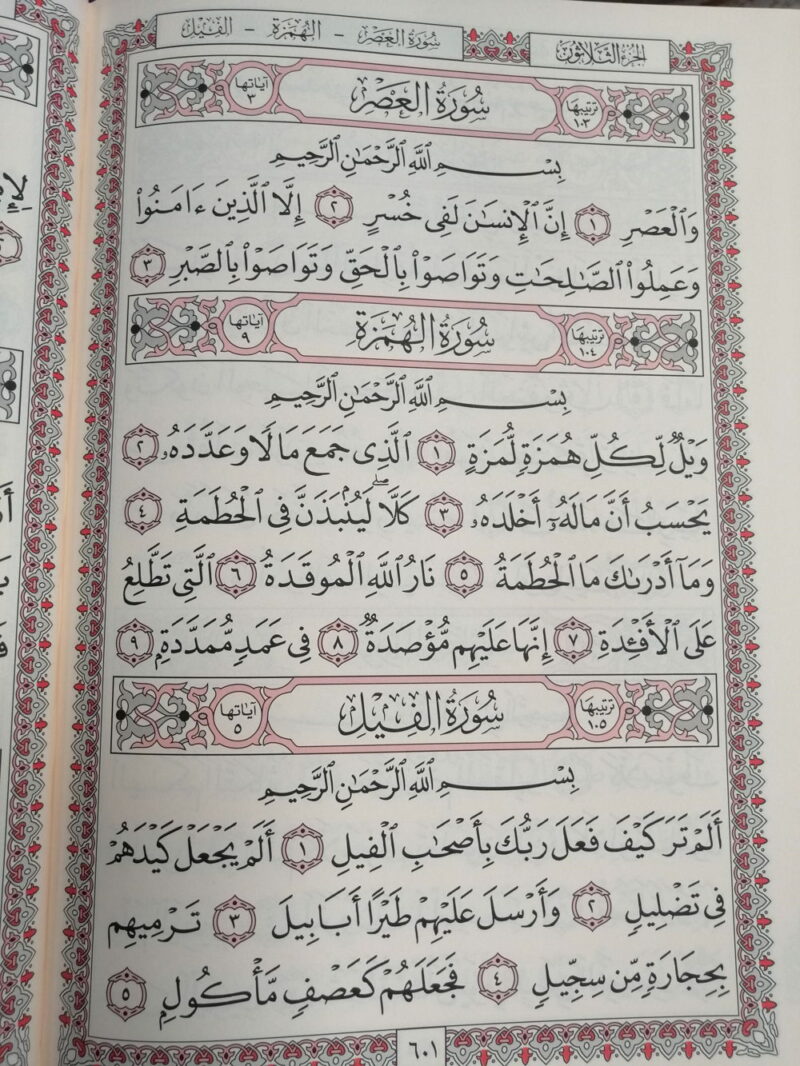 الجزء الثلاثون
سورة العصر - الهمزة - الفيل
ترتيبها ١٠٣ سُورَةُ العَصْرِ آياتها ٣
بِسْمِ ٱللَّهِ ٱلرَّحْمَٰنِ ٱلرَّحِيمِ
وَٱلْعَصْرِ ١ إِنَّ ٱلْإِنسَٰنَ لَفِى خُسْرٍ ٢ إِلَّا ٱلَّذِينَ ءَامَنُوا۟
وَعَمِلُوا۟ ٱلصَّٰلِحَٰتِ وَتَوَاصَوْا۟ بِٱلْحَقِّ وَتَوَاصَوْا۟ بِٱلصَّبْرِ ٣
ترتيبها ١٠٤ سُورَةُ الهُمَزَةِ آياتها ٩
بِسْمِ ٱللَّهِ ٱلرَّحْمَٰنِ ٱلرَّحِيمِ
وَيْلٌ لِّكُلِّ هُمَزَةٍ لُّمَزَةٍ ١ ٱلَّذِى جَمَعَ مَالًا وَعَدَّدَهُۥ ٢
يَحْسَبُ أَنَّ مَالَهُۥٓ أَخْلَدَهُۥ ٣ كَلَّا ۖ لَيُنۢبَذَنَّ فِى ٱلْحُطَمَةِ ٤
وَمَآ أَدْرَىٰكَ مَا ٱلْحُطَمَةُ ٥ نَارُ ٱللَّهِ ٱلْمُوقَدَةُ ٦ ٱلَّتِى تَطَّلِعُ
عَلَى ٱلْأَفْـِٔدَةِ ٧ إِنَّهَا عَلَيْهِم مُّؤْصَدَةٌ ٨ فِى عَمَدٍ مُّمَدَّدَةٍۭ ٩
ترتيبها ١٠٥ سُورَةُ الفِيلِ آياتها ٥
بِسْمِ ٱللَّهِ ٱلرَّحْمَٰنِ ٱلرَّحِيمِ
أَلَمْ تَرَ كَيْفَ فَعَلَ رَبُّكَ بِأَصْحَٰبِ ٱلْفِيلِ ١ أَلَمْ يَجْعَلْ كَيْدَهُمْ
فِى تَضْلِيلٍ ٢ وَأَرْسَلَ عَلَيْهِمْ طَيْرًا أَبَابِيلَ ٣ تَرْمِيهِم
بِحِجَارَةٍ مِّن سِجِّيلٍ ٤ فَجَعَلَهُمْ كَعَصْفٍ مَّأْكُولٍۭ ٥
٦٠١